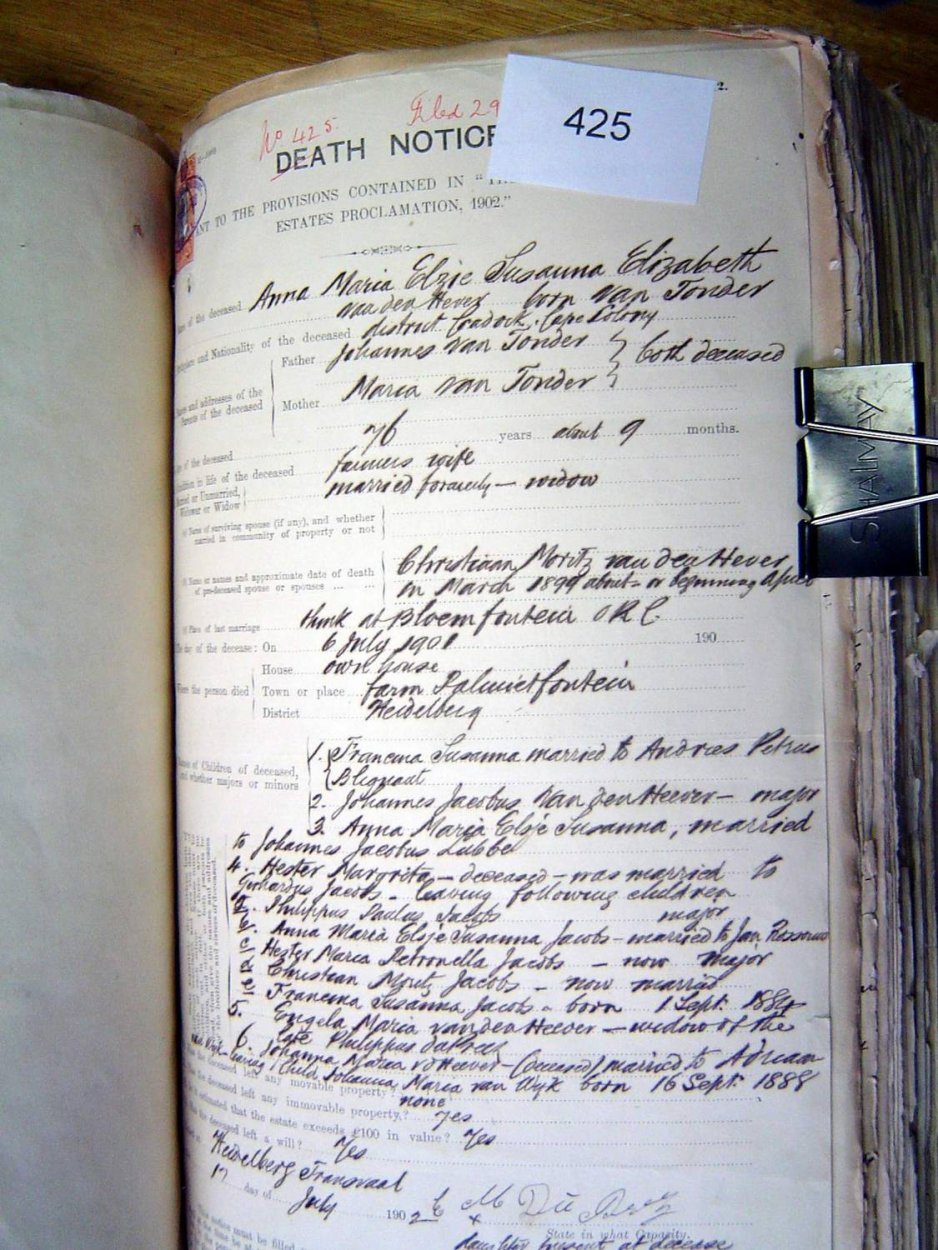 No 425. Filed 29
425
2.
DEATH NOTICE
ANT TO THE PROVISIONS CONTAINED IN "TH
ESTATES PROCLAMATION, 1902."
of the deceased Anna Maria Elzie Susanna Elizabeth
van den Hever born van Tonder
and Nationality of the deceased district Cradock, Cape Colony
and addresses of the Parents of the deceased
Father Johannes van Tonder } both deceased
Mother Maria van Tonder
of the deceased 76 years about 9 months.
in life of the deceased farmers wife
Married or Unmarried, Widower or Widow married formerly — widow
Name of surviving spouse (if any), and whether
married in community of property or not
Name or names and approximate date of death
of pre-deceased spouse or spouses ... ...
Christiaan Moritz van den Hever
on March 1899 about or beginning April
Place of last marriage think at Bloemfontein ORC
day of the decease: On 6 July 1901 190
Where the person died
House own house
Town or place farm Palmietfontein
District Heidelberg
Names of Children of deceased,
and whether majors or minors
1. Francina Susanna married to Andries Petrus
Bliguaut
2. Johannes Jacobus Van den Heever — major
3. Anna Maria Elsje Susanna, married
to Johannes Jacobus Lubbe
4. Hester Margrita — deceased — was married to
Gerhardus Jacobs - leaving following children
a. Philippus Paulus Jacobs major
b. Anna Maria Elsje Susanna Jacobs — married to Jan
c. Hester Maria Petronella Jacobs — now major
d. Christian Moritz Jacobs — now married
e. Francina Susanna Jacobs — born 1 Sept. 1884
5. Engela Maria van den Heever — widow of the
late Philippus
6. Johanna Maria vd Heever (deceased) married to Adriaan
van Wyk — leaving child Johanna Maria van Wyk born 16 Sept. 1888
the deceased left any movable property? none
the deceased left any immovable property? yes
estimated that the estate exceeds £100 in value? Yes
the deceased left a will? Yes
Heidelberg Transvaal
17 day of July 1902
State in what Capacity.
daughter present at decease
SHALMAY